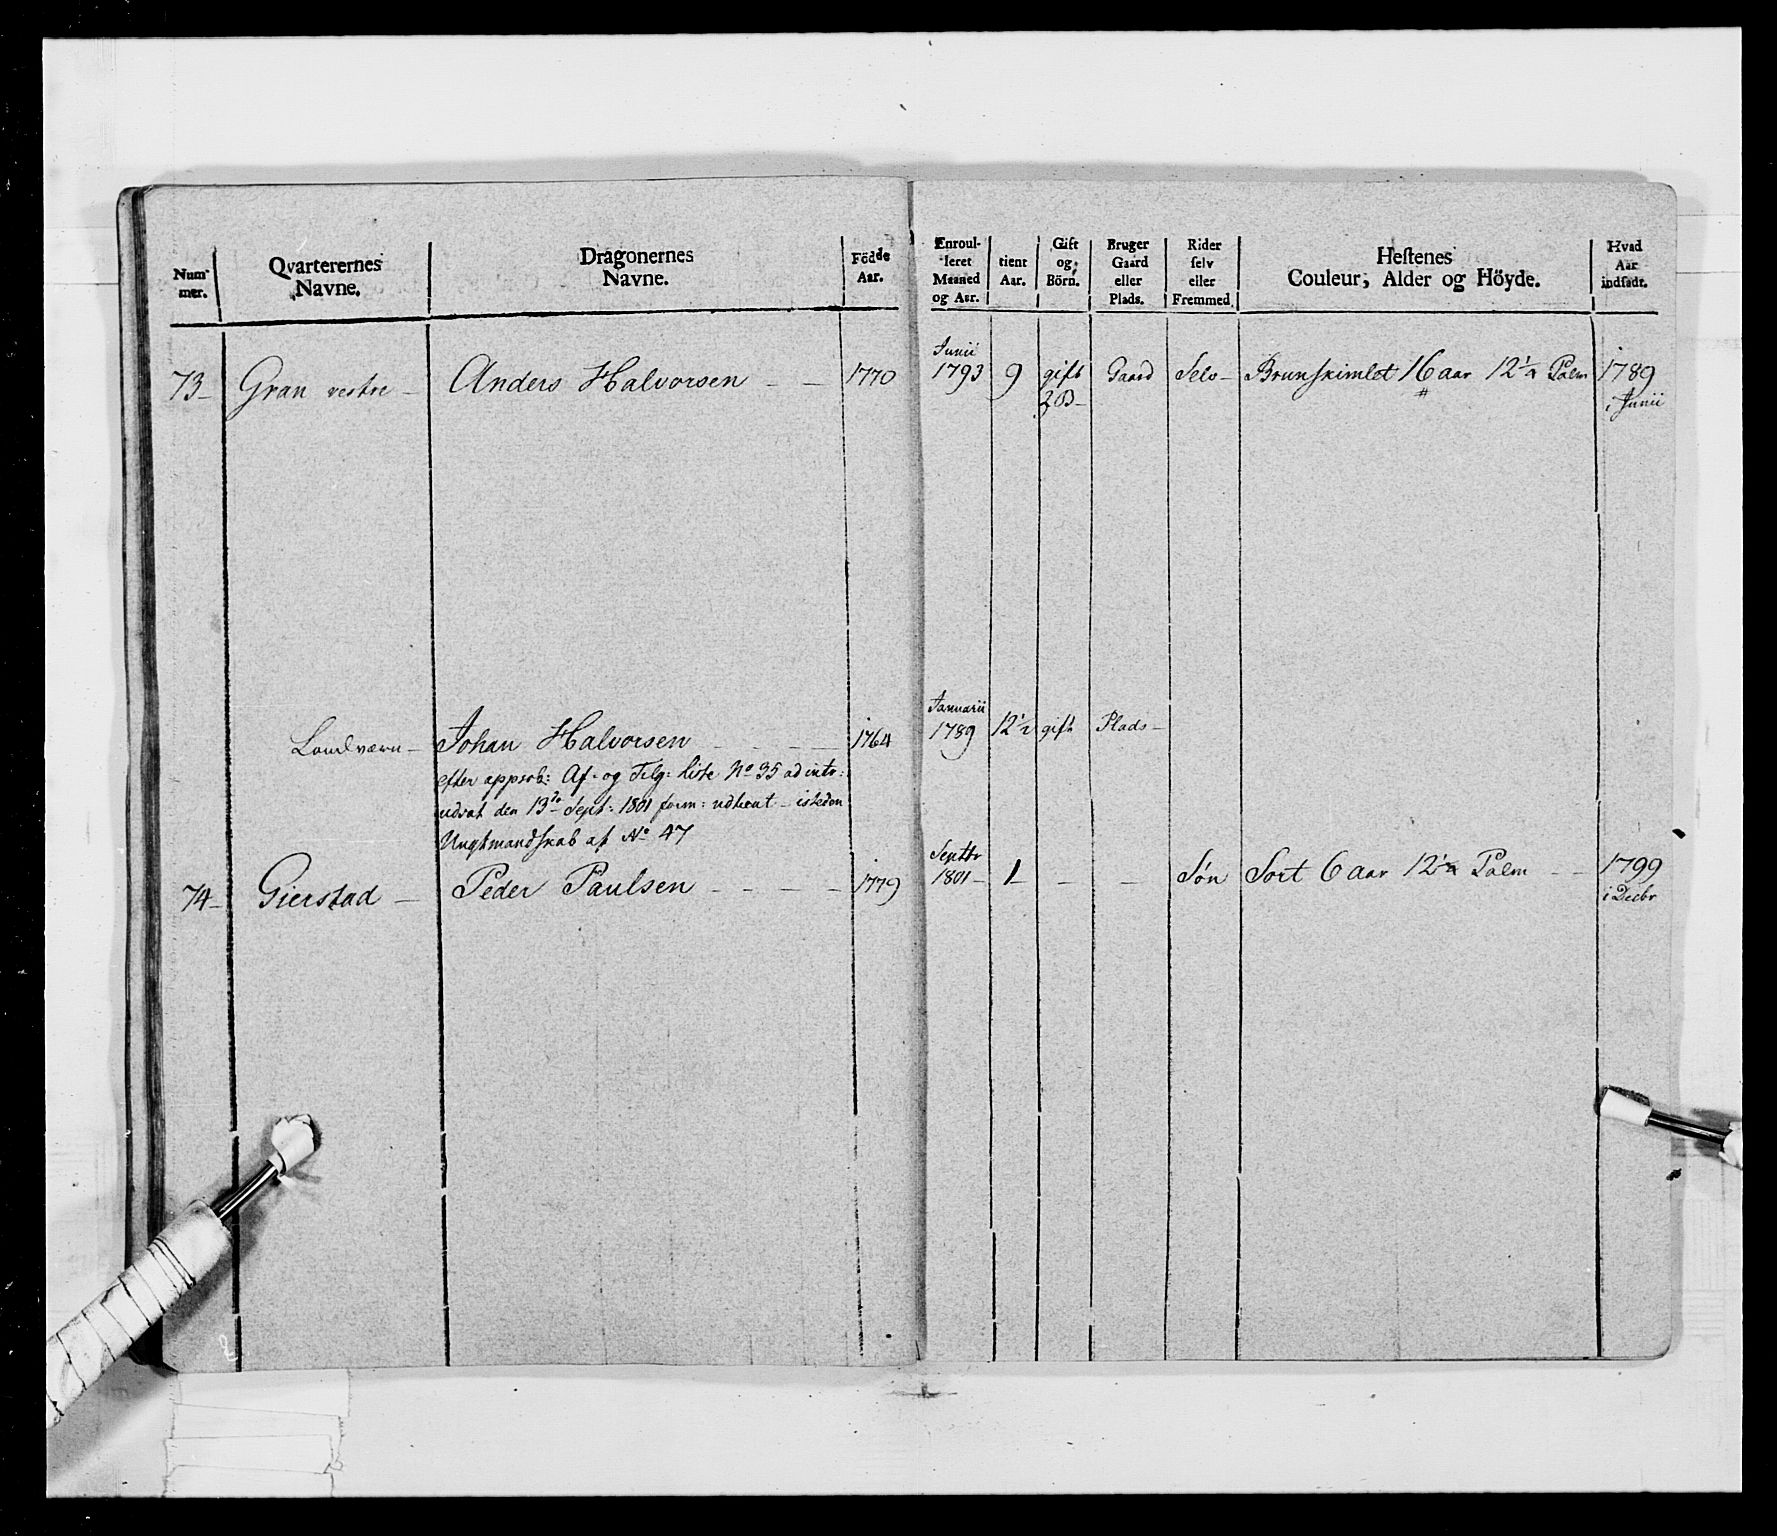 Num-
mer.
Qvarterernes
Navne.
Dragonernes
Navne.
Födde
Aar.
Enroul-
leret
Maaned
og Aar.
tient
Aar.
Gift
og
Börn.
Bruger
Gaard
eller
Plads.
Rider
selv
eller
Fremmed.
Hestenes
Couleur, Alder og Höyde.
Hvad
Aar
indsadt.
73 - Gran vestre - Anders Halvorsen - - 1770 Junii 1793 9 gift 2 B - Gaard Selv - Brunskimlet 16 aar 12 1/2 Palm 1789 i Junii
Landværn - Johan Halvorsen - - - - 1764 Januarii 1789 12 1/2 gift Plads -
efter approb: Af- og Tilg: liste No 35 ad intr:
udsat den 13de Sept: 1801 form: udtient - isteden
Ungtmandskab af No 47
74 - Gierstad - Peder Paulsen - - - - 1779 Septbr 1801 - 1 - - - Søn Sort 6 aar 12 1/2 Palm - - 1799 i Decbr